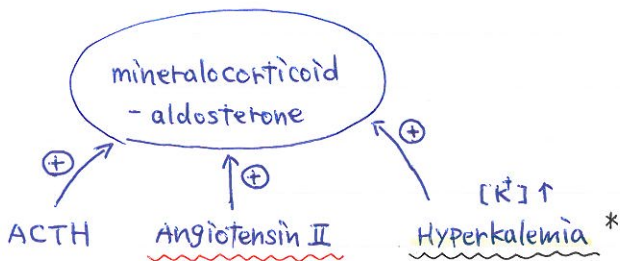 mineralocorticoid
- aldosterone
⊕ ⊕ ⊕
[K⁺] ↑
ACTH Angiotensin II Hyperkalemia *